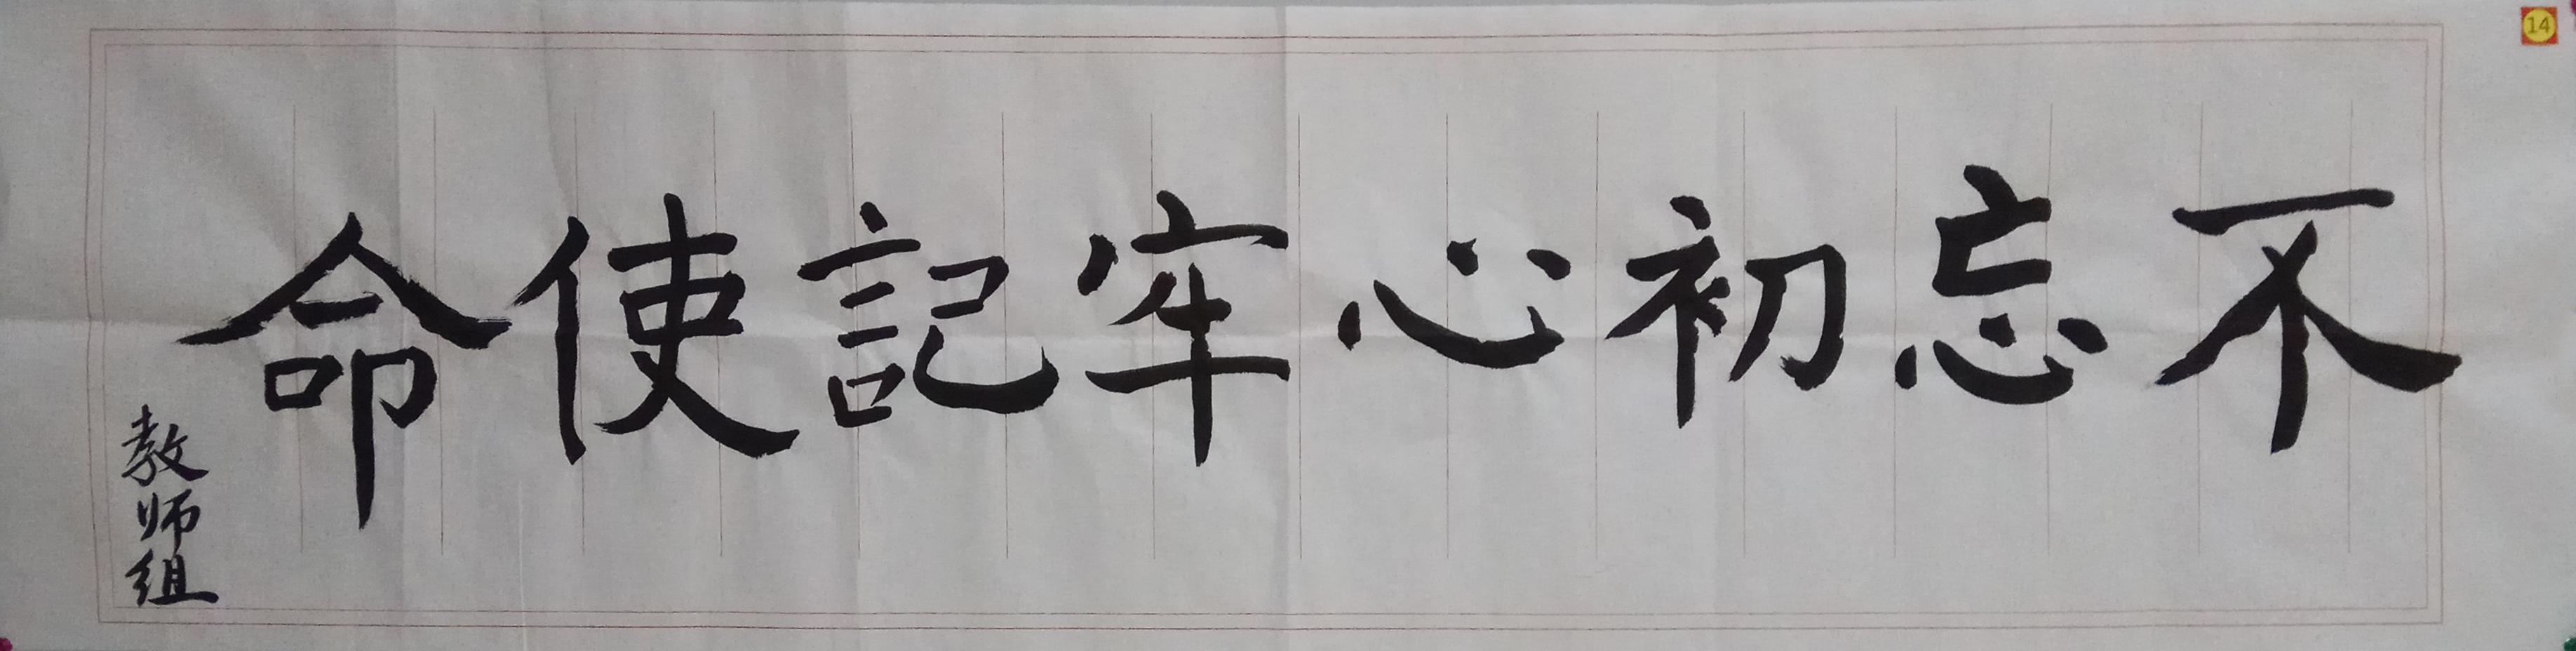 不忘初心牢記使命
教师组
14